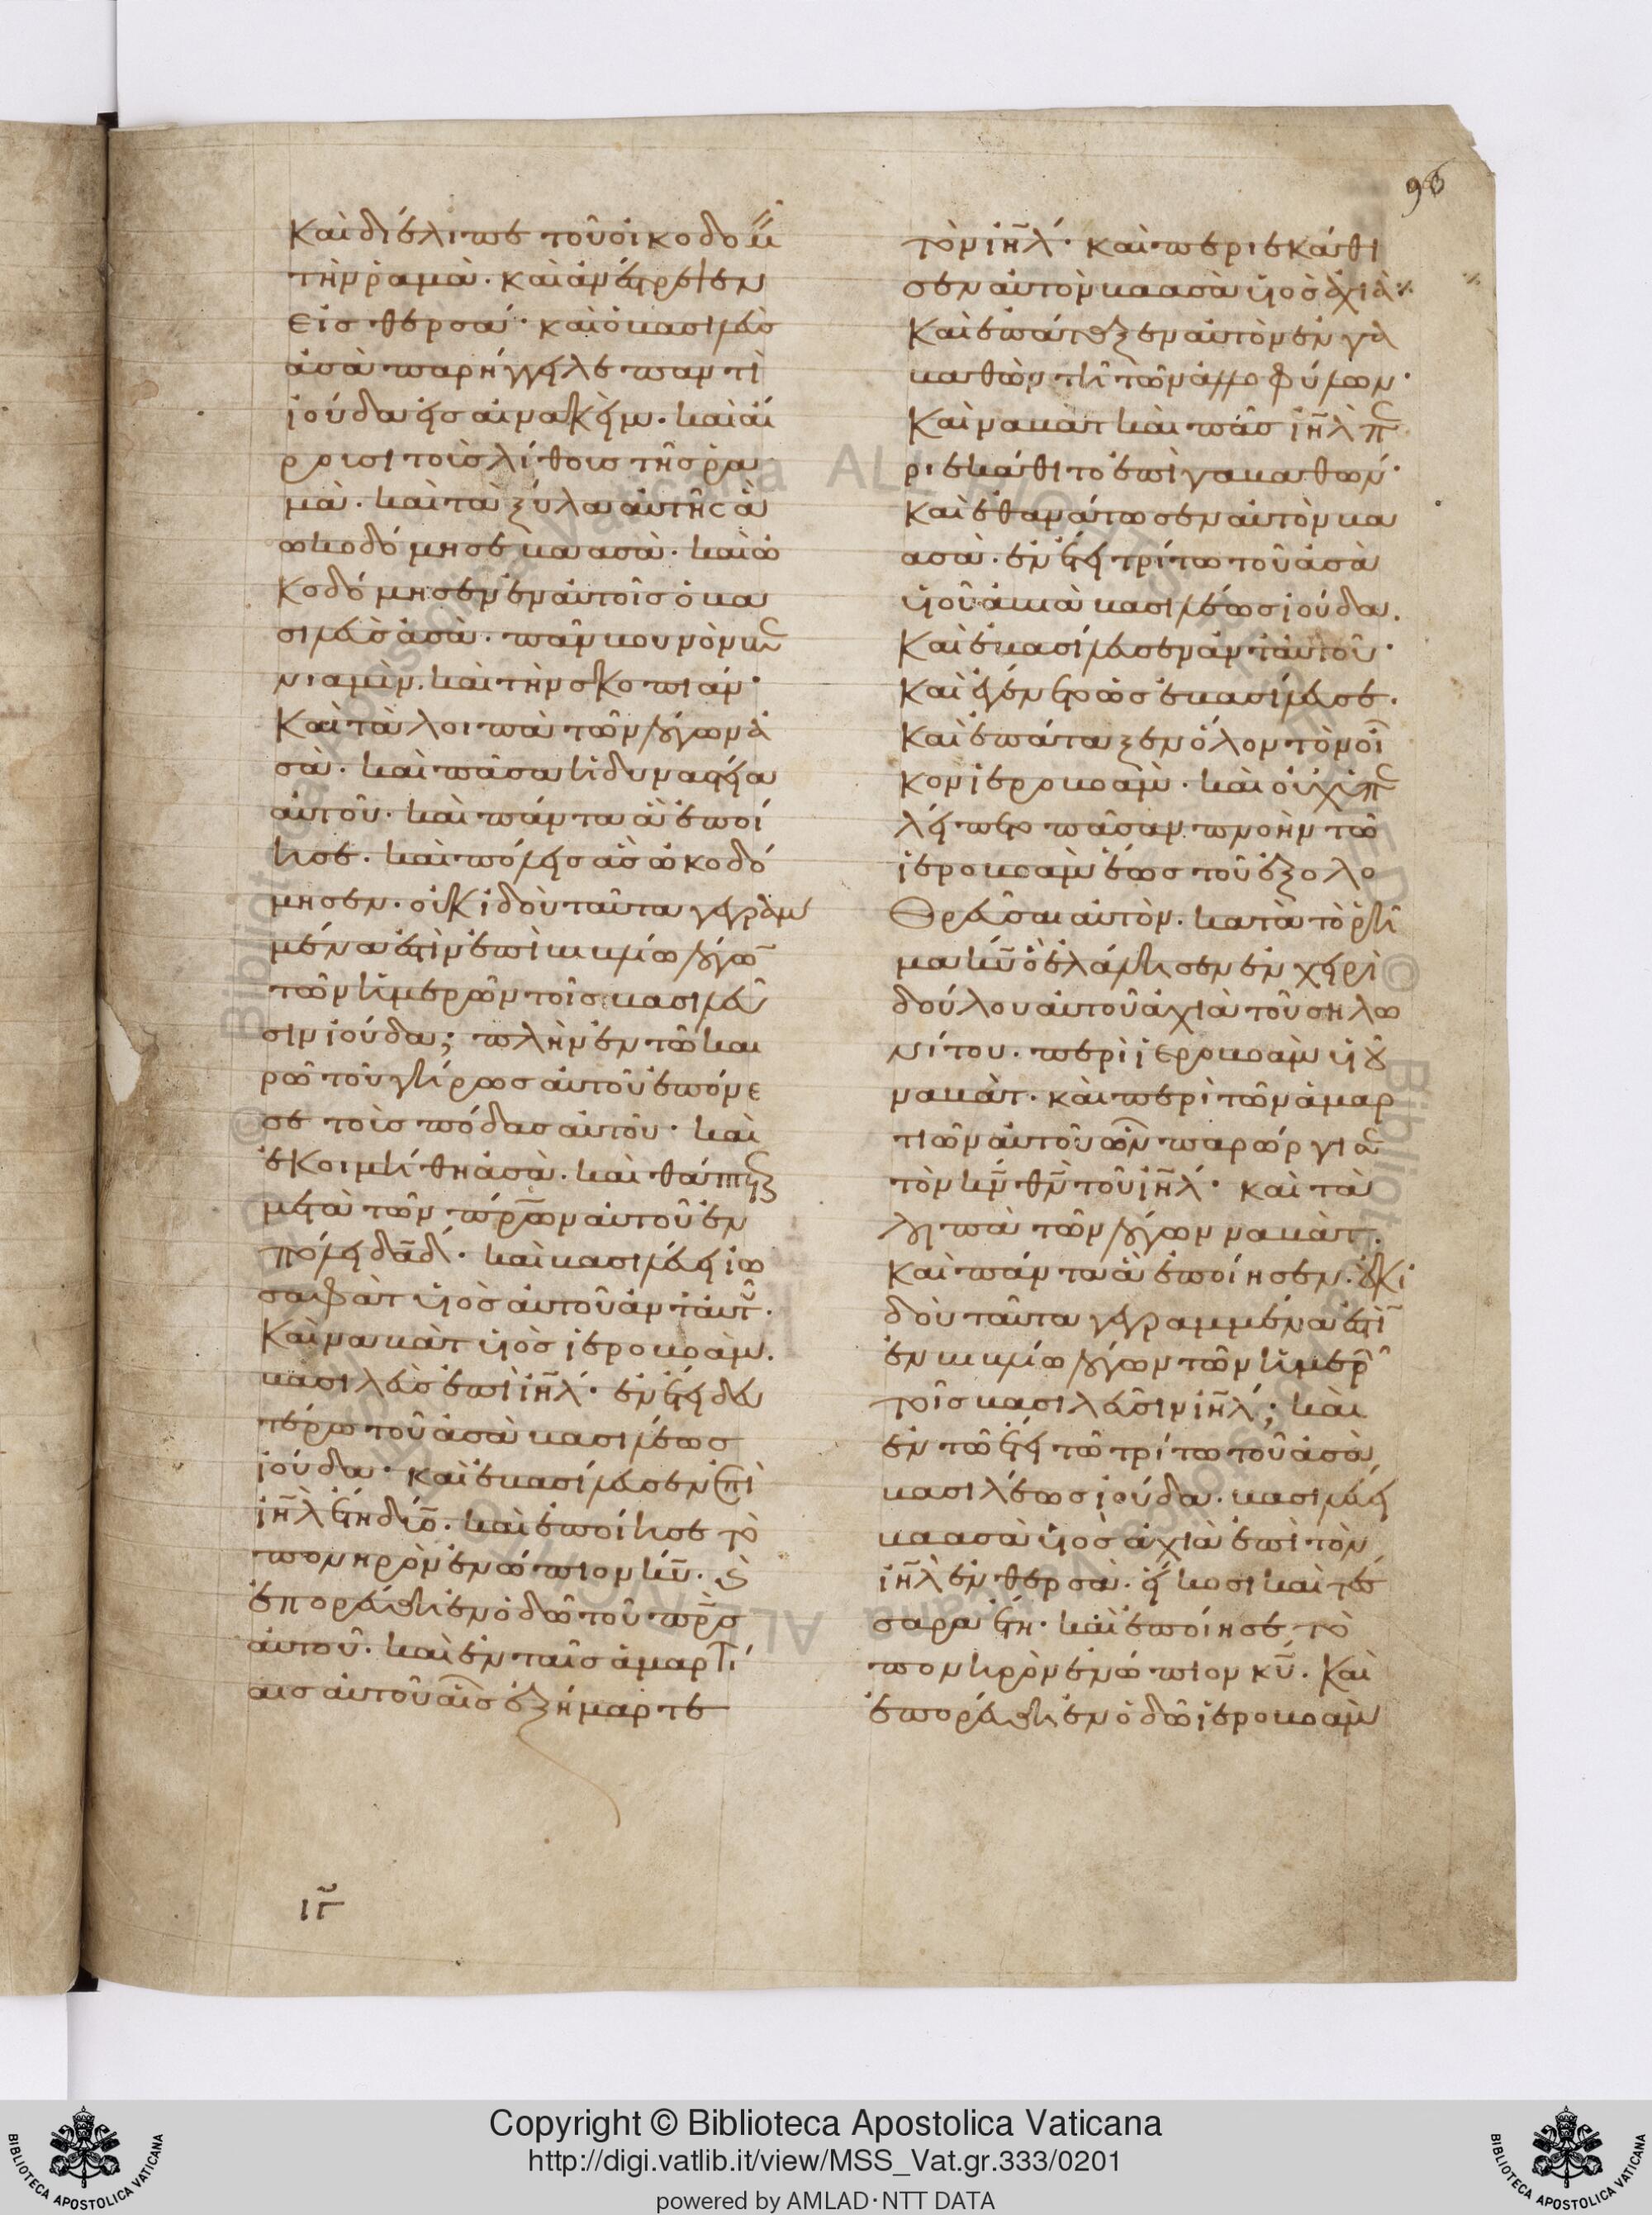 Καὶ διέλιπε τοῦ οἰκοδομ
τὴν ῥαμὰ· καὶ ἀνέστρεψεν
εἰς θερσά· καὶ ὁ βασιλεὺς
ἀσὰ παρήγγειλε παντὶ
ἰούδα εἰς αἰνακείμ· καὶ αἴ
ρουσι τοὺς λίθους τῆς ῥα
μὰ· καὶ τὰ ξύλα αὐτῆς ἃ
ὠκοδόμησε βαασὰ· καὶ ὠ
κοδόμησεν ἐν αὐτοῖς ὁ βα
σιλεὺς ἀσὰ· πᾶν βουνὸν βε
νιαμὶν· καὶ τὴν σκοπιάν·
Καὶ τὰ λοιπὰ τῶν λόγων ἀ
σὰ· καὶ πᾶσα ἡ δυναστεία
αὐτοῦ· καὶ πάντα ἃ ἐποί
ησε· καὶ πόλεις ἃς ὠκοδό
μησεν· οὐκ ἰδοὺ ταῦτα γεγραμ
μένα ἐστὶν ἐπὶ βιβλίω λόγω̅
τῶν ἡμερῶν τοῖς βασιλεῦ
σιν ἰούδα; πλὴν ἐν τῶ και
ρῶ τοῦ γήρως αὐτοῦ ἐπόνε
σε τοὺς πόδας αὐτοῦ· καὶ
ἐκοιμήθη ἀσὰ· καὶ θάπτεται
μετὰ τῶν πρ̅ων αὐτοῦ ἐν
πόλει δα̅δ· καὶ βασιλεύει ἰω
σαφὰτ υἱὸς αὐτοῦ ἀντ' αὐτοῦ.
Καὶ ναβὰτ υἱὸς ἱεροβοὰμ.
βασιλεὺς ἐπὶ ιη̅λ· ἐν ἔτει δευ
τέρω τοῦ ἀσὰ βασιλέως
ἰούδα· καὶ ἐβασίλευσεν ἐπὶ
ιη̅λ ἔτη δύο̅. καὶ ἐποίησε τὸ
πονηρὸν ἐνώπιον κυ̅. καὶ
ἐπορεύθη ἐν ὁδῶ τοῦ πρ̅ς
αὐτοῦ· καὶ ἐν ταῖς ἁμαρτί
αις αὐτοῦ αἷς ἐξήμαρτε
ιγ̅
96
τὸν ιη̅λ· καὶ περιεκάθι
σεν αὐτὸν βαασὰ υἱὸς ἀχιὰ·
Καὶ ἐπάταξεν αὐτὸν ἐν γα
βαθὼν τῆ τῶν ἀλλοφύλων·
Καὶ ναβὰτ καὶ πᾶς ιη̅λ πε
ριεκάθιτο ἐπὶ γαβαθών·
Καὶ ἐθανάτωσεν αὐτὸν βα
ασὰ· ἐν ἔτει τρίτω τοῦ ἀσὰ
υἱοῦ ἀβιὰ βασιλέως ἰούδα.
Καὶ ἐβασίλευσεν ἀντ' αὐτοῦ·
Καὶ ἐγένετο ὡς ἐβασίλευσε.
Καὶ ἐπάταξεν ὅλον τὸν οἶ
κον ἱεροβοὰμ· καὶ οὐχ ὑπε
λείπετο πᾶσαν πνοὴν τῶ
ἱεροβοὰμ ἕως τοῦ ἐξολο
θρεῦσαι αὐτὸν· κατὰ τὸ ῥῆ
μα κυ̅ ὃ ἐλάλησεν ἐν χειρὶ
δούλου αὐτοῦ ἀχιὰ τοῦ σηλω
νίτου· περὶ ἱεροβοὰμ υἱοῦ
ναβὰτ· καὶ περὶ τῶν ἁμαρ
τιῶν αὐτοῦ ὧν παρώργισε
τὸν κν̅ θν̅ τοῦ ιη̅λ· καὶ τὰ
λοιπὰ τῶν λόγων ναβὰτ.
Καὶ πάντα ἃ ἐποίησεν· οὐκ ἰ
δοὺ ταῦτα γεγραμμένα ἐστὶ
ἐν βιβλίω λόγων τῶν ἡμερ
τοῖς βασιλεῦσιν ιη̅λ; καὶ
ἐν τῶ ἔτει τῶ τρίτω τοῦ ἀσὰ
βασιλέως ἰούδα· βασιλεύει
βαασὰ υἱὸς ἀχιὰ ἐπὶ τὸν
ιη̅λ ἐν θερσὰ· εἴκοσι καὶ τέσ
σαρα ἔτη· καὶ ἐποίησε τὸ
πονηρὸν ἐνώπιον κυ̅. Καὶ
ἐπορεύθη ἐν ὁδῶ ἱεροβοὰμ
Copyright © Biblioteca Apostolica Vaticana
http://digi.vatlib.it/view/MSS_Vat.gr.333/0201
powered by AMLAD·NTT DATA
BIBLIOTECA APOSTOLICA VATICANA
BIBLIOTECA APOSTOLICA VATICANA